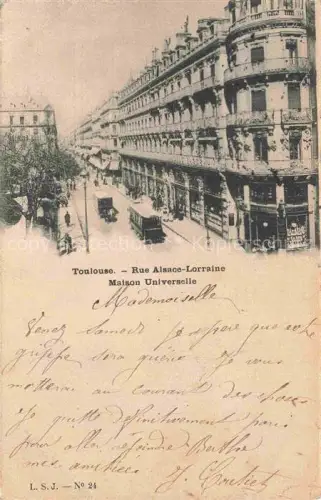 Toulouse. - Rue Alsace-Lorraine
Maison Universelle
Mademoiselle
Venez samedi j'espère que votre
grippe sera guérie. Je vous
mettrai au courant des choses
Je quitte définitivement paris
pour aller rejoindre Berthe
mes amitiés
L. S. J. — No 24